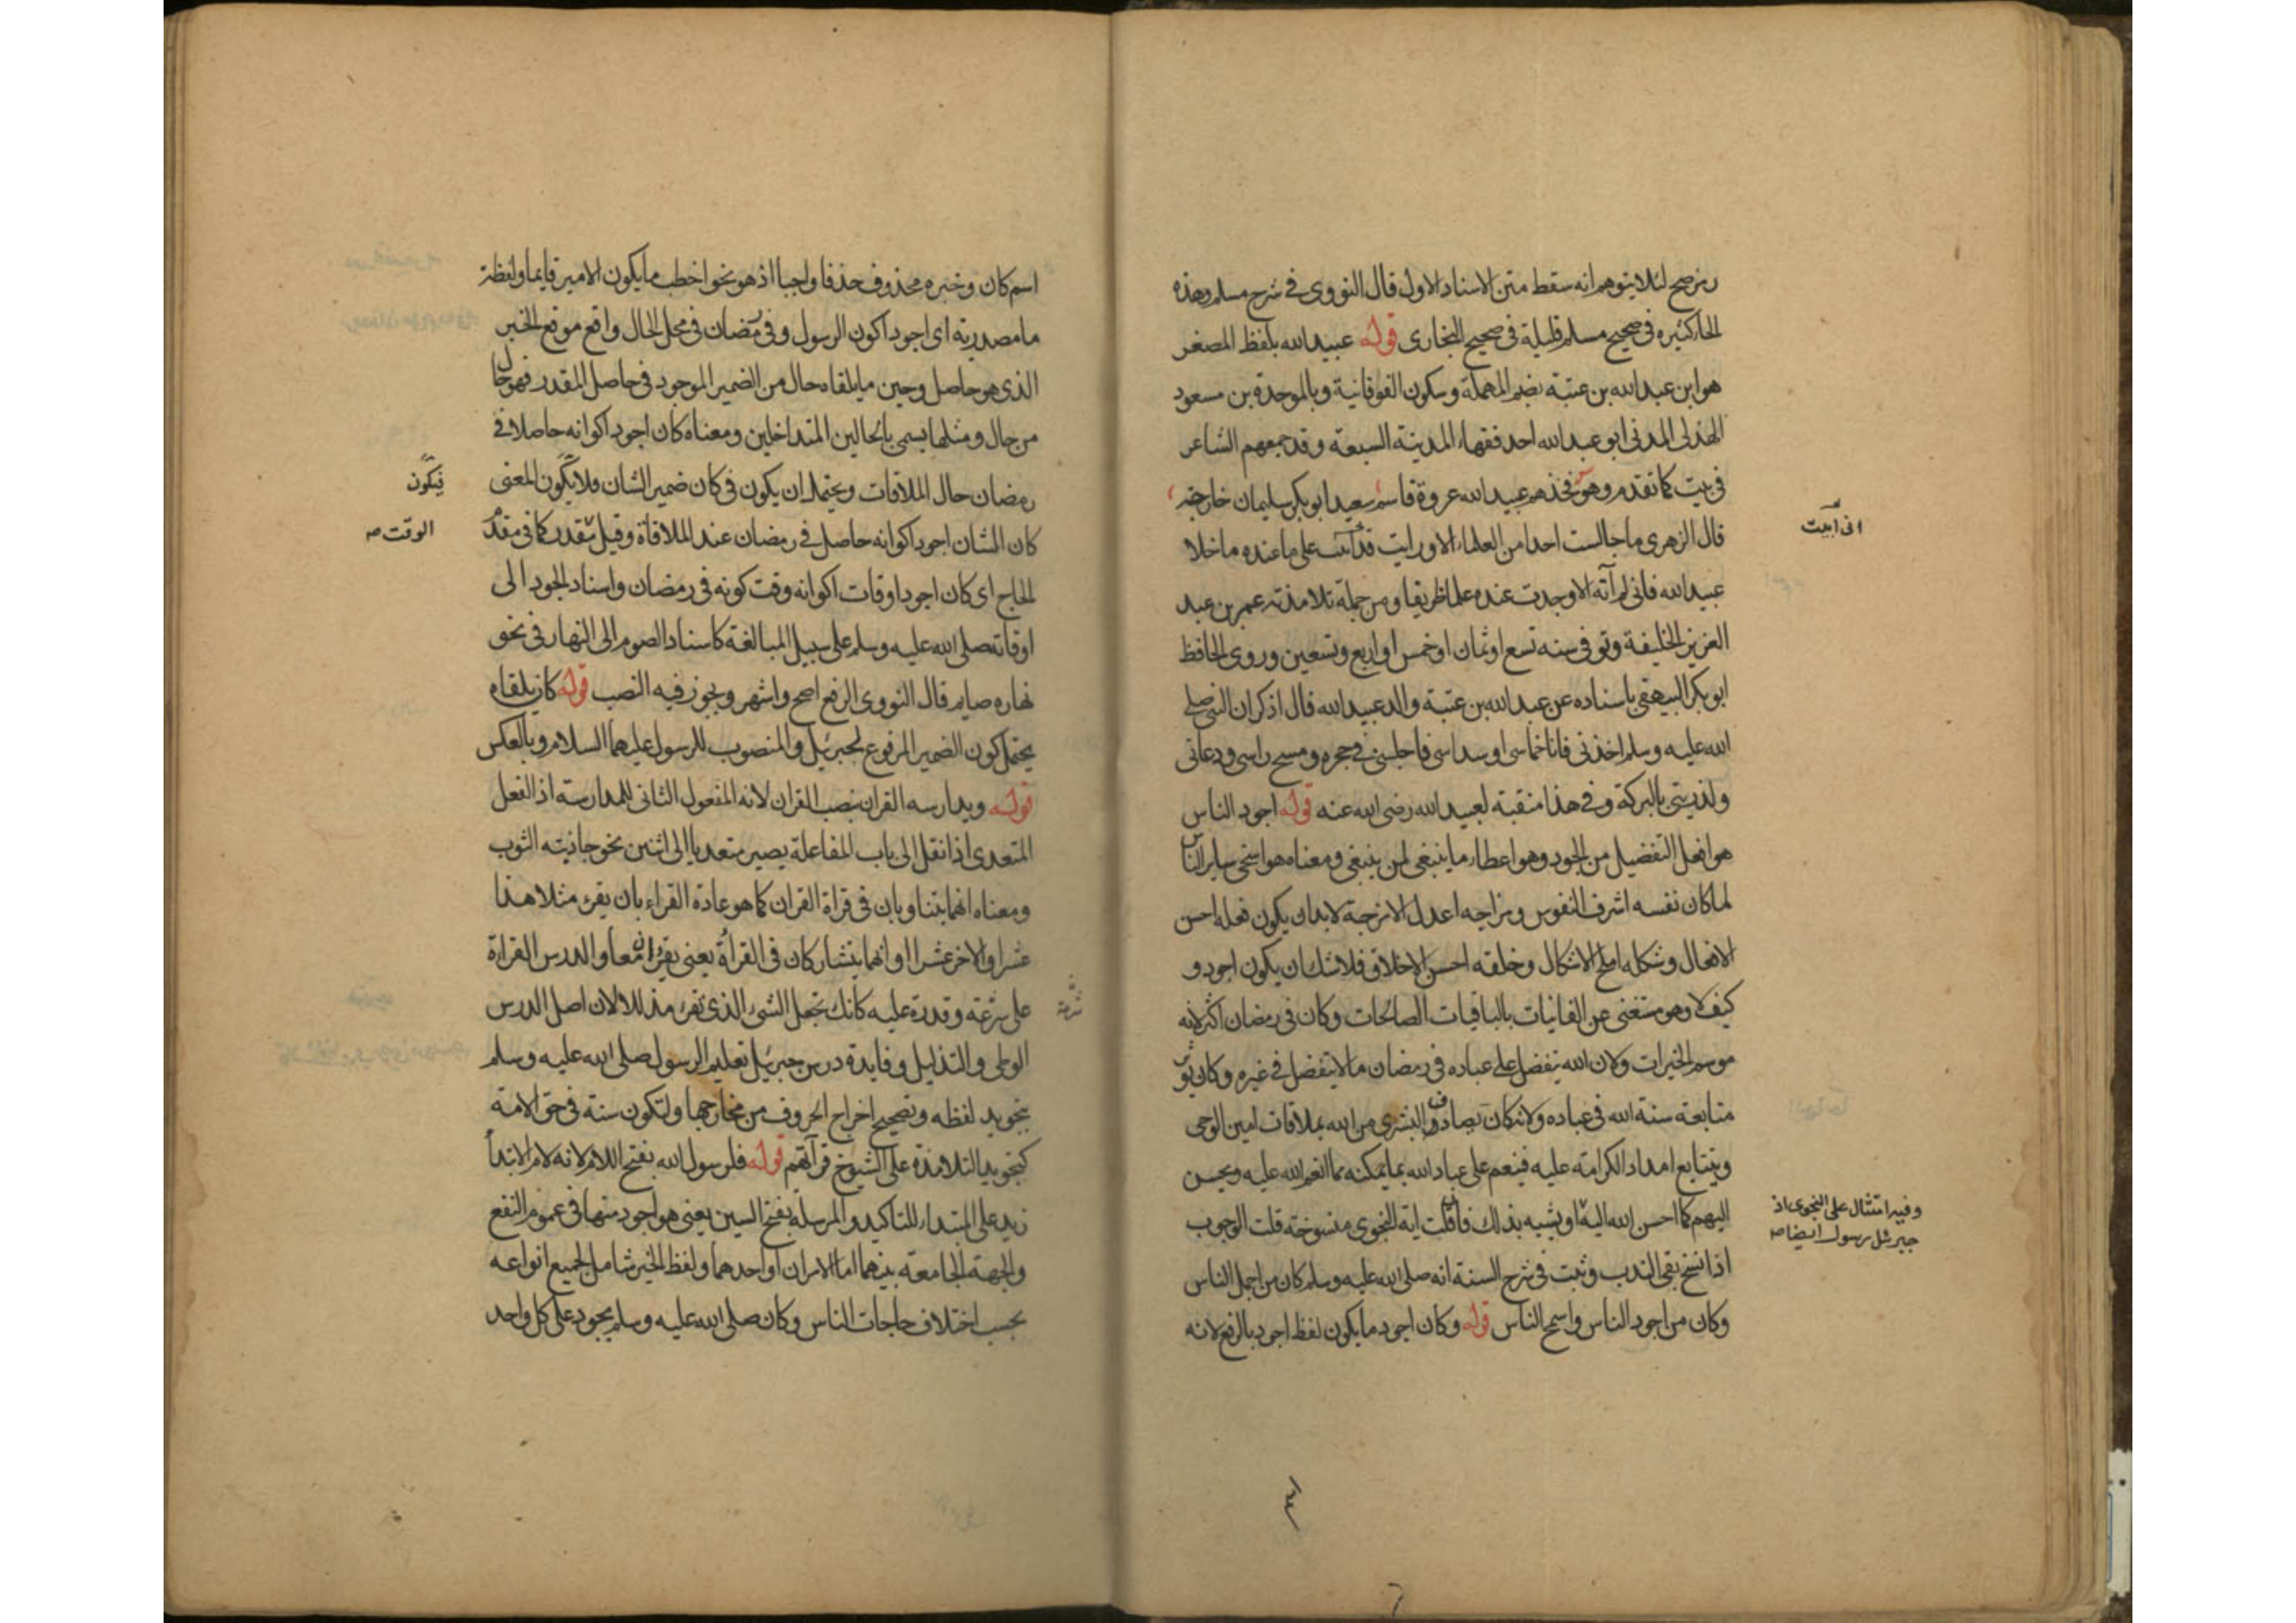 رمز صح لئلا يتوهم انه سقط متن الاسناد الاول قال النووى فى شرح مسلم وهذه
الحا كثيره فى صحيح مسلم قليلة فى صحيح البخارى قوله عبيد الله بلفظ المصغر
هو ابن عبد الله بن عتبة بضم المهملة وسكون الفوقانية وبالموحدة بن مسعود
الهذلى المدنى ابو عبد الله احد فقهاء المدينة السبعة وقد جمعهم الشاعر
فى بيت كما تقدم وهو فخذهم عبيد الله عروة قاسم سعيد ابو بكر سليمان خارجة
قال الزهرى ما جالست احدا من العلماء الا ورايت قد اتيت على ما عنده ما خلا
عبيد الله فانى لم آته الا وجدت عنده علما ظريفا ومن جملة تلامذته عمر بن عبد
العزيز الخليفة وتوفى سنه تسع او ثمان او خمس او اربع وتسعين وروى الحافظ
ابو بكر البيهقى باسناده عن عبد الله بن عتبة والد عبيد الله قال اذكر ان النبى صلى
الله عليه وسلم اخذنى فانا خماسى او سداسى فاجلسنى فى حجره ومسح راسى ودعانى
ولذريتى بالبركة وفى هذا منقبة لعبيد الله رضى الله عنه قوله اجود الناس
هو افعل التفضيل من الجود وهو اعطاء ما ينبغى لمن ينبغى ومعناه هو اسخى ساير الناس
لما كان نفسه اشرف النفوس ومزاجه اعدل الامزجة لا بد ان يكون فعله احسن
الافعال وشكله املح الاشكال وخلقه احسن الاخلاق فلا شك ان يكون اجود و
كيف لا وهو مستغنى عن الفانيات بالباقيات الصالحات وكان فى رمضان اكثر لانه
موسم الخيرات ولان الله يتفضل على عباده فى رمضان ما لا يتفضل فى غيره وكان يوثر
متابعة سنة الله فى عباده ولانه كان يصادف البشرى من الله بملاقات امين الوحى
ويتتابع امداد الكرامة عليه فينعم على عباد الله بما يمكنه مما انعم الله عليه ويحسن
اليهم كما احسن الله اليه او يشبه بذلك فان قلت اية النجوى منسوخة قلت الوجوب
اذا نسخ بقى الندب وثبت فى شرح السنة انه صلى الله عليه وسلم كان من اجمل الناس
وكان من اجود الناس واسمح الناس قوله وكان اجود ما يكون لفظ اجود بالرفع لانه
انى اتيت
وفيه امتثال على النجوى اذ
جبرئل رسول ايضا صه
اسم كان وخبره محذوف حذفا واجبا اذ هو نحو اخطب ما يكون الامير قايما ولفظة
ما مصدرية اى اجود اكون الرسول وفى رمضان فى محل الحال واقع موقع الخبر
الذى هو حاصل وحين ما يلقاه حال من الضمير الموجود فى حاصل المقدر فهو حال
من حال ومثلها يسمى بالحالين المتداخلين ومعناه كان اجود اكوانه حاصلا فى
رمضان حال الملاقات ويحتمل ان يكون فى كان ضمير الشان فلا يكون المعنى
كان الشان اجود اكوانه حاصل فى رمضان عند الملاقاة وقيل يقدر كما فى مقدم
الحاج اى كان اجود اوقات اكوانه وقت كونه فى رمضان واسناد الجود الى
اوقاته صلى الله عليه وسلم على سبيل المبالغة كاسناد الصوم الى النهار فى نحو
نهاره صايم قال النووى الرفع اصح واشهر ويجوز فيه النصب قوله كان يلقاه
يحتمل كون الضمير المرفوع لجبرئيل والمنصوب للرسول عليهما السلام وبالعكس
قوله ويدارسه القران بنصب القران لانه المفعول الثانى للمدارسة اذ الفعل
المتعدى اذا نقل الى باب المفاعلة يصير متعديا الى اثنين نحو جاذبته الثوب
ومعناه انهما يتناوبان فى قراة القران كما هو عادة القراء بان يقرء مثلا هذا
عشرا والاخر عشرا او انهما يتشاركان فى القرأة يعنى يقرءان معا والدرس القراءة
على سرعة وقدرة عليه كانك تجعل الشئ الذى تقرء مذللا لان اصل الدرس
الوطى والتذليل وفايدة درس جبرئيل تعليم الرسول صلى الله عليه وسلم
بتجويد لفظه وتصحيح اخراج الحروف من مخارجها ولتكون سنة فى حق الامة
كتجويد التلامذة على الشيوخ قرآتهم قوله فلرسول الله بفتح اللام لانه لام الابتدأ
زيد على المبتداء للتاكيد والمرسلة بفتح السين يعنى هو اجود منها فى عموم النفع
والجهة الجامعة بينهما اما الامران او احدهما ولفظ الخير شامل لجميع انواعه
بحسب اختلاف حاجات الناس وكان صلى الله عليه وسلم يجود على كل واحد
فيكون
الوقت صه